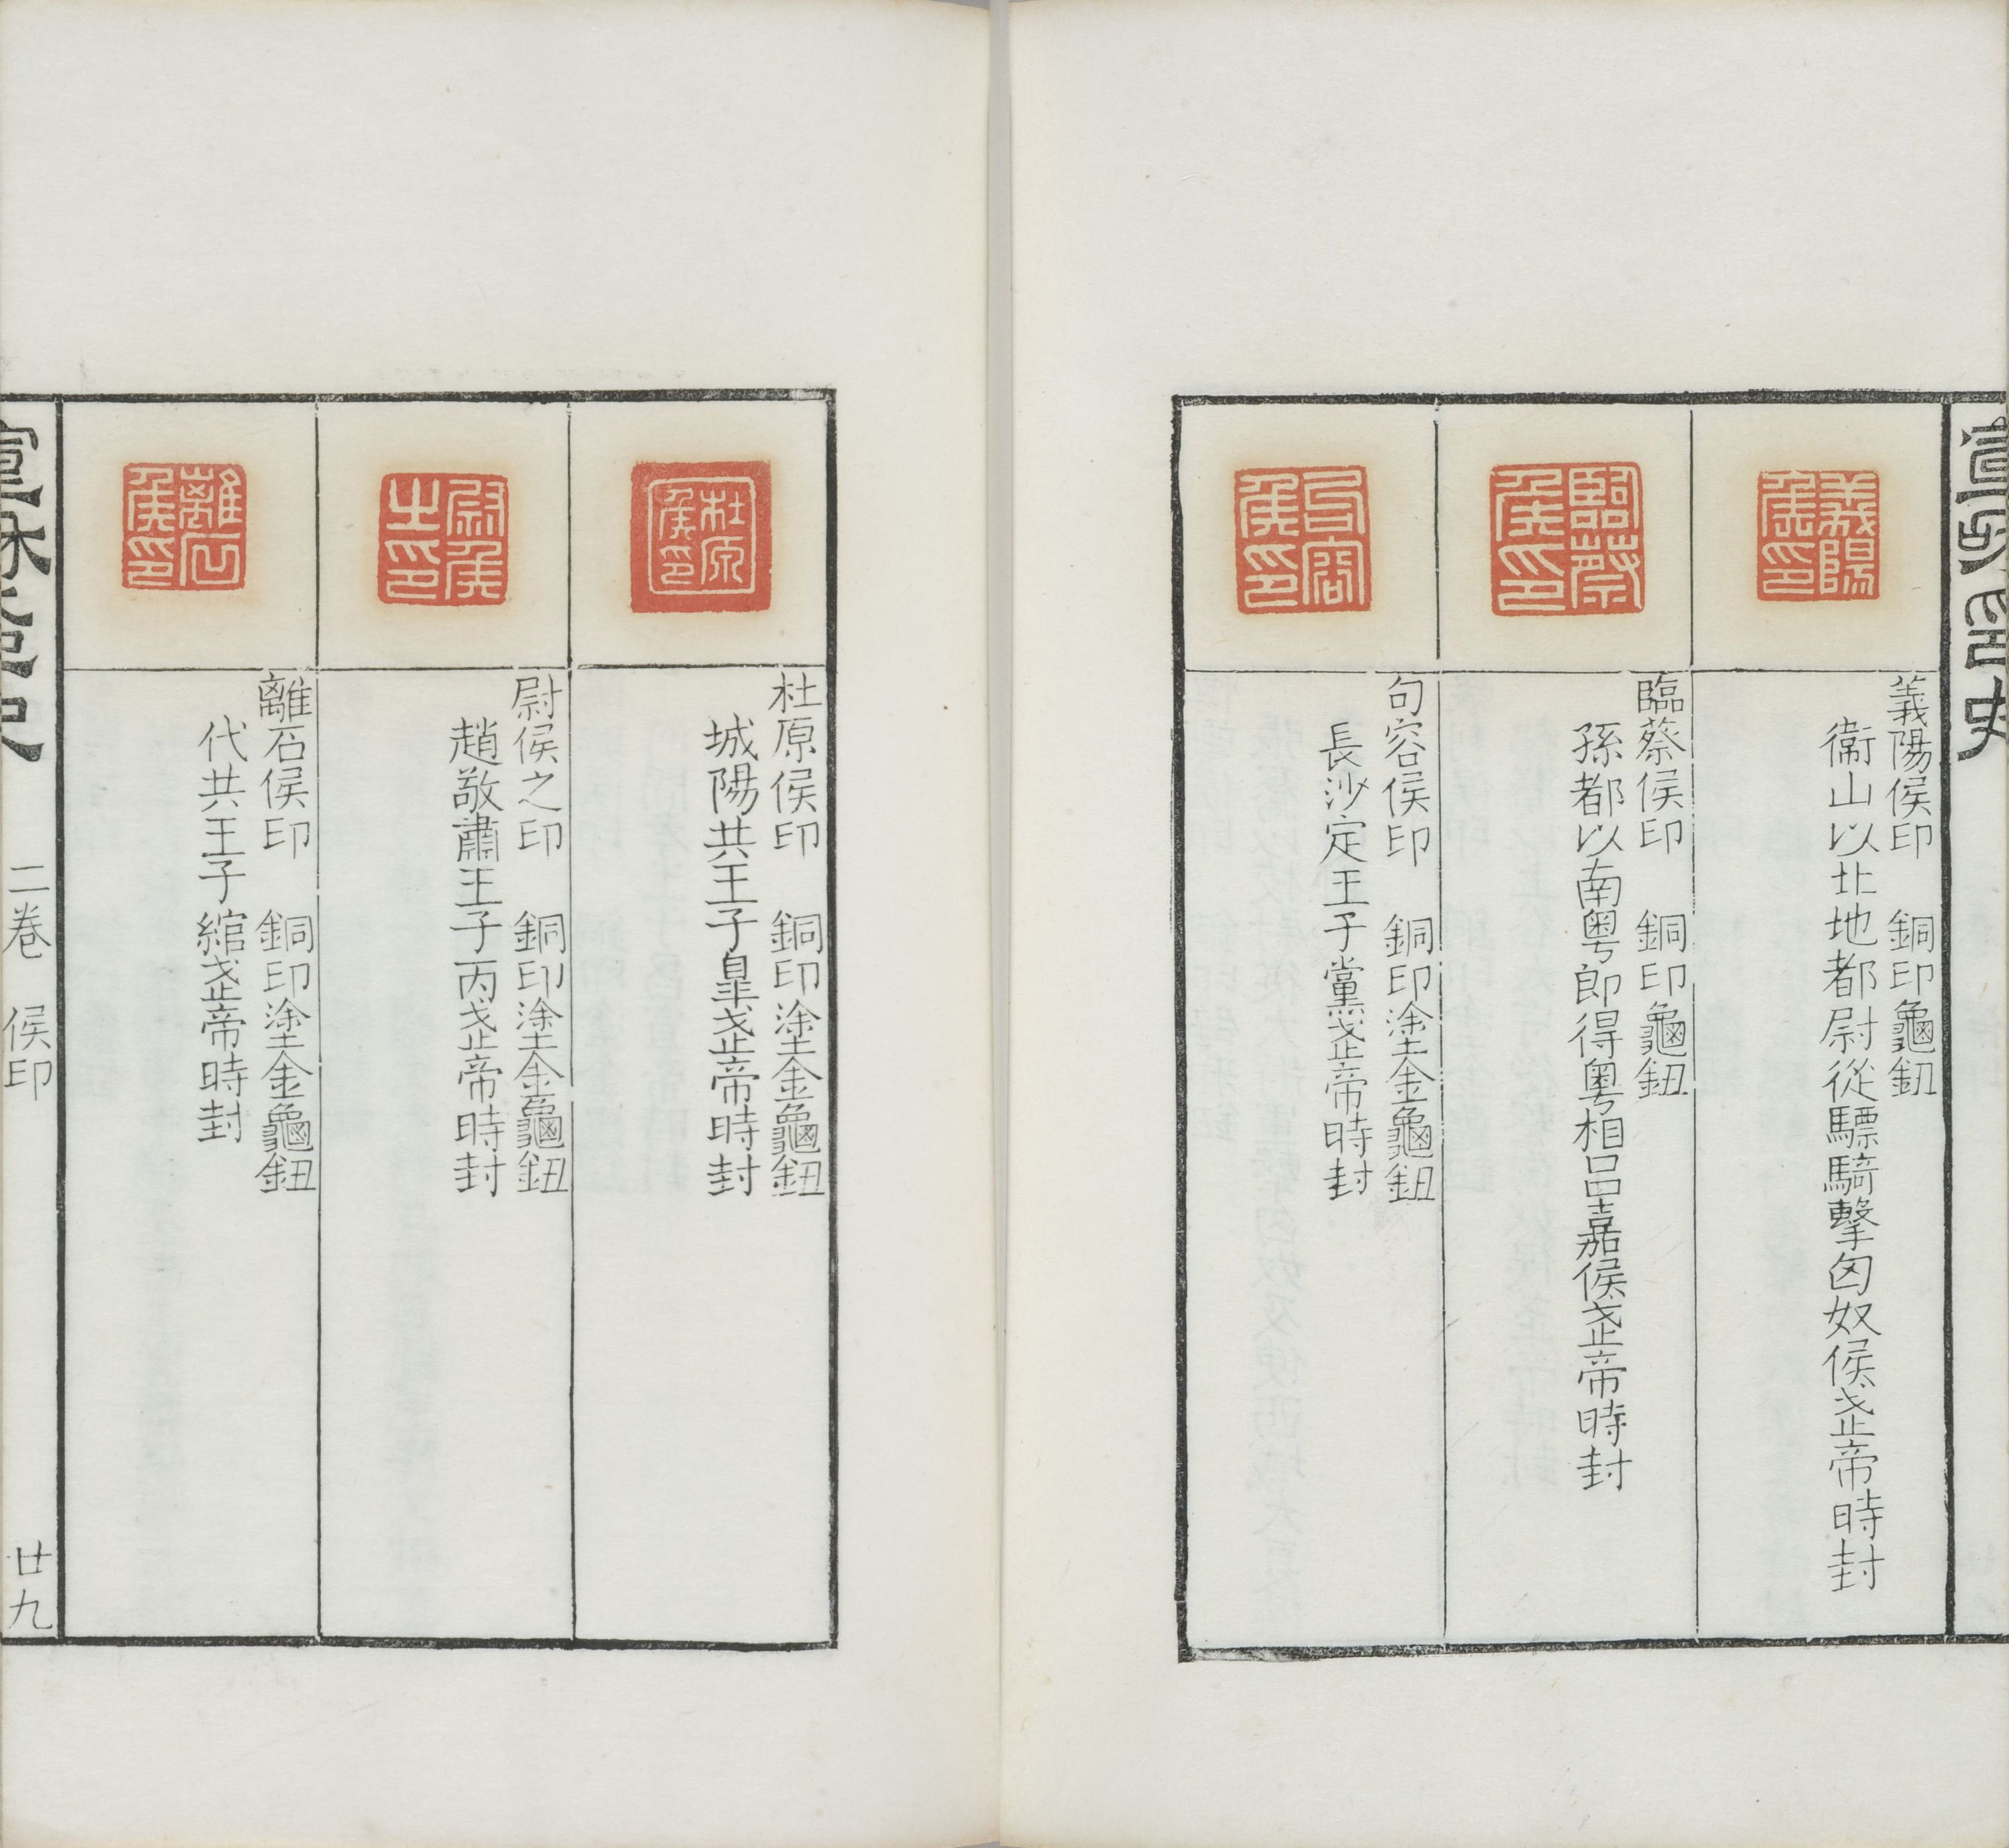 宣和印史
義陽侯印
義陽侯印　銅印龜鈕
衞山以北地都尉從驃騎擊匈奴侯武帝時封
臨蔡侯印
臨蔡侯印　銅印龜鈕
孫都以南粵郎得粵相呂嘉侯武帝時封
句容侯印
句容侯印　銅印塗金龜鈕
長沙定王子黨武帝時封
杜原侯印
杜原侯印　銅印塗金龜鈕
城陽共王子皐武帝時封
尉侯之印
尉侯之印　銅印塗金龜鈕
趙敬肅王子丙武帝時封
離石侯印
離石侯印　銅印塗金龜鈕
代共王子綰武帝時封
宣和印史　二卷　侯印　廿九